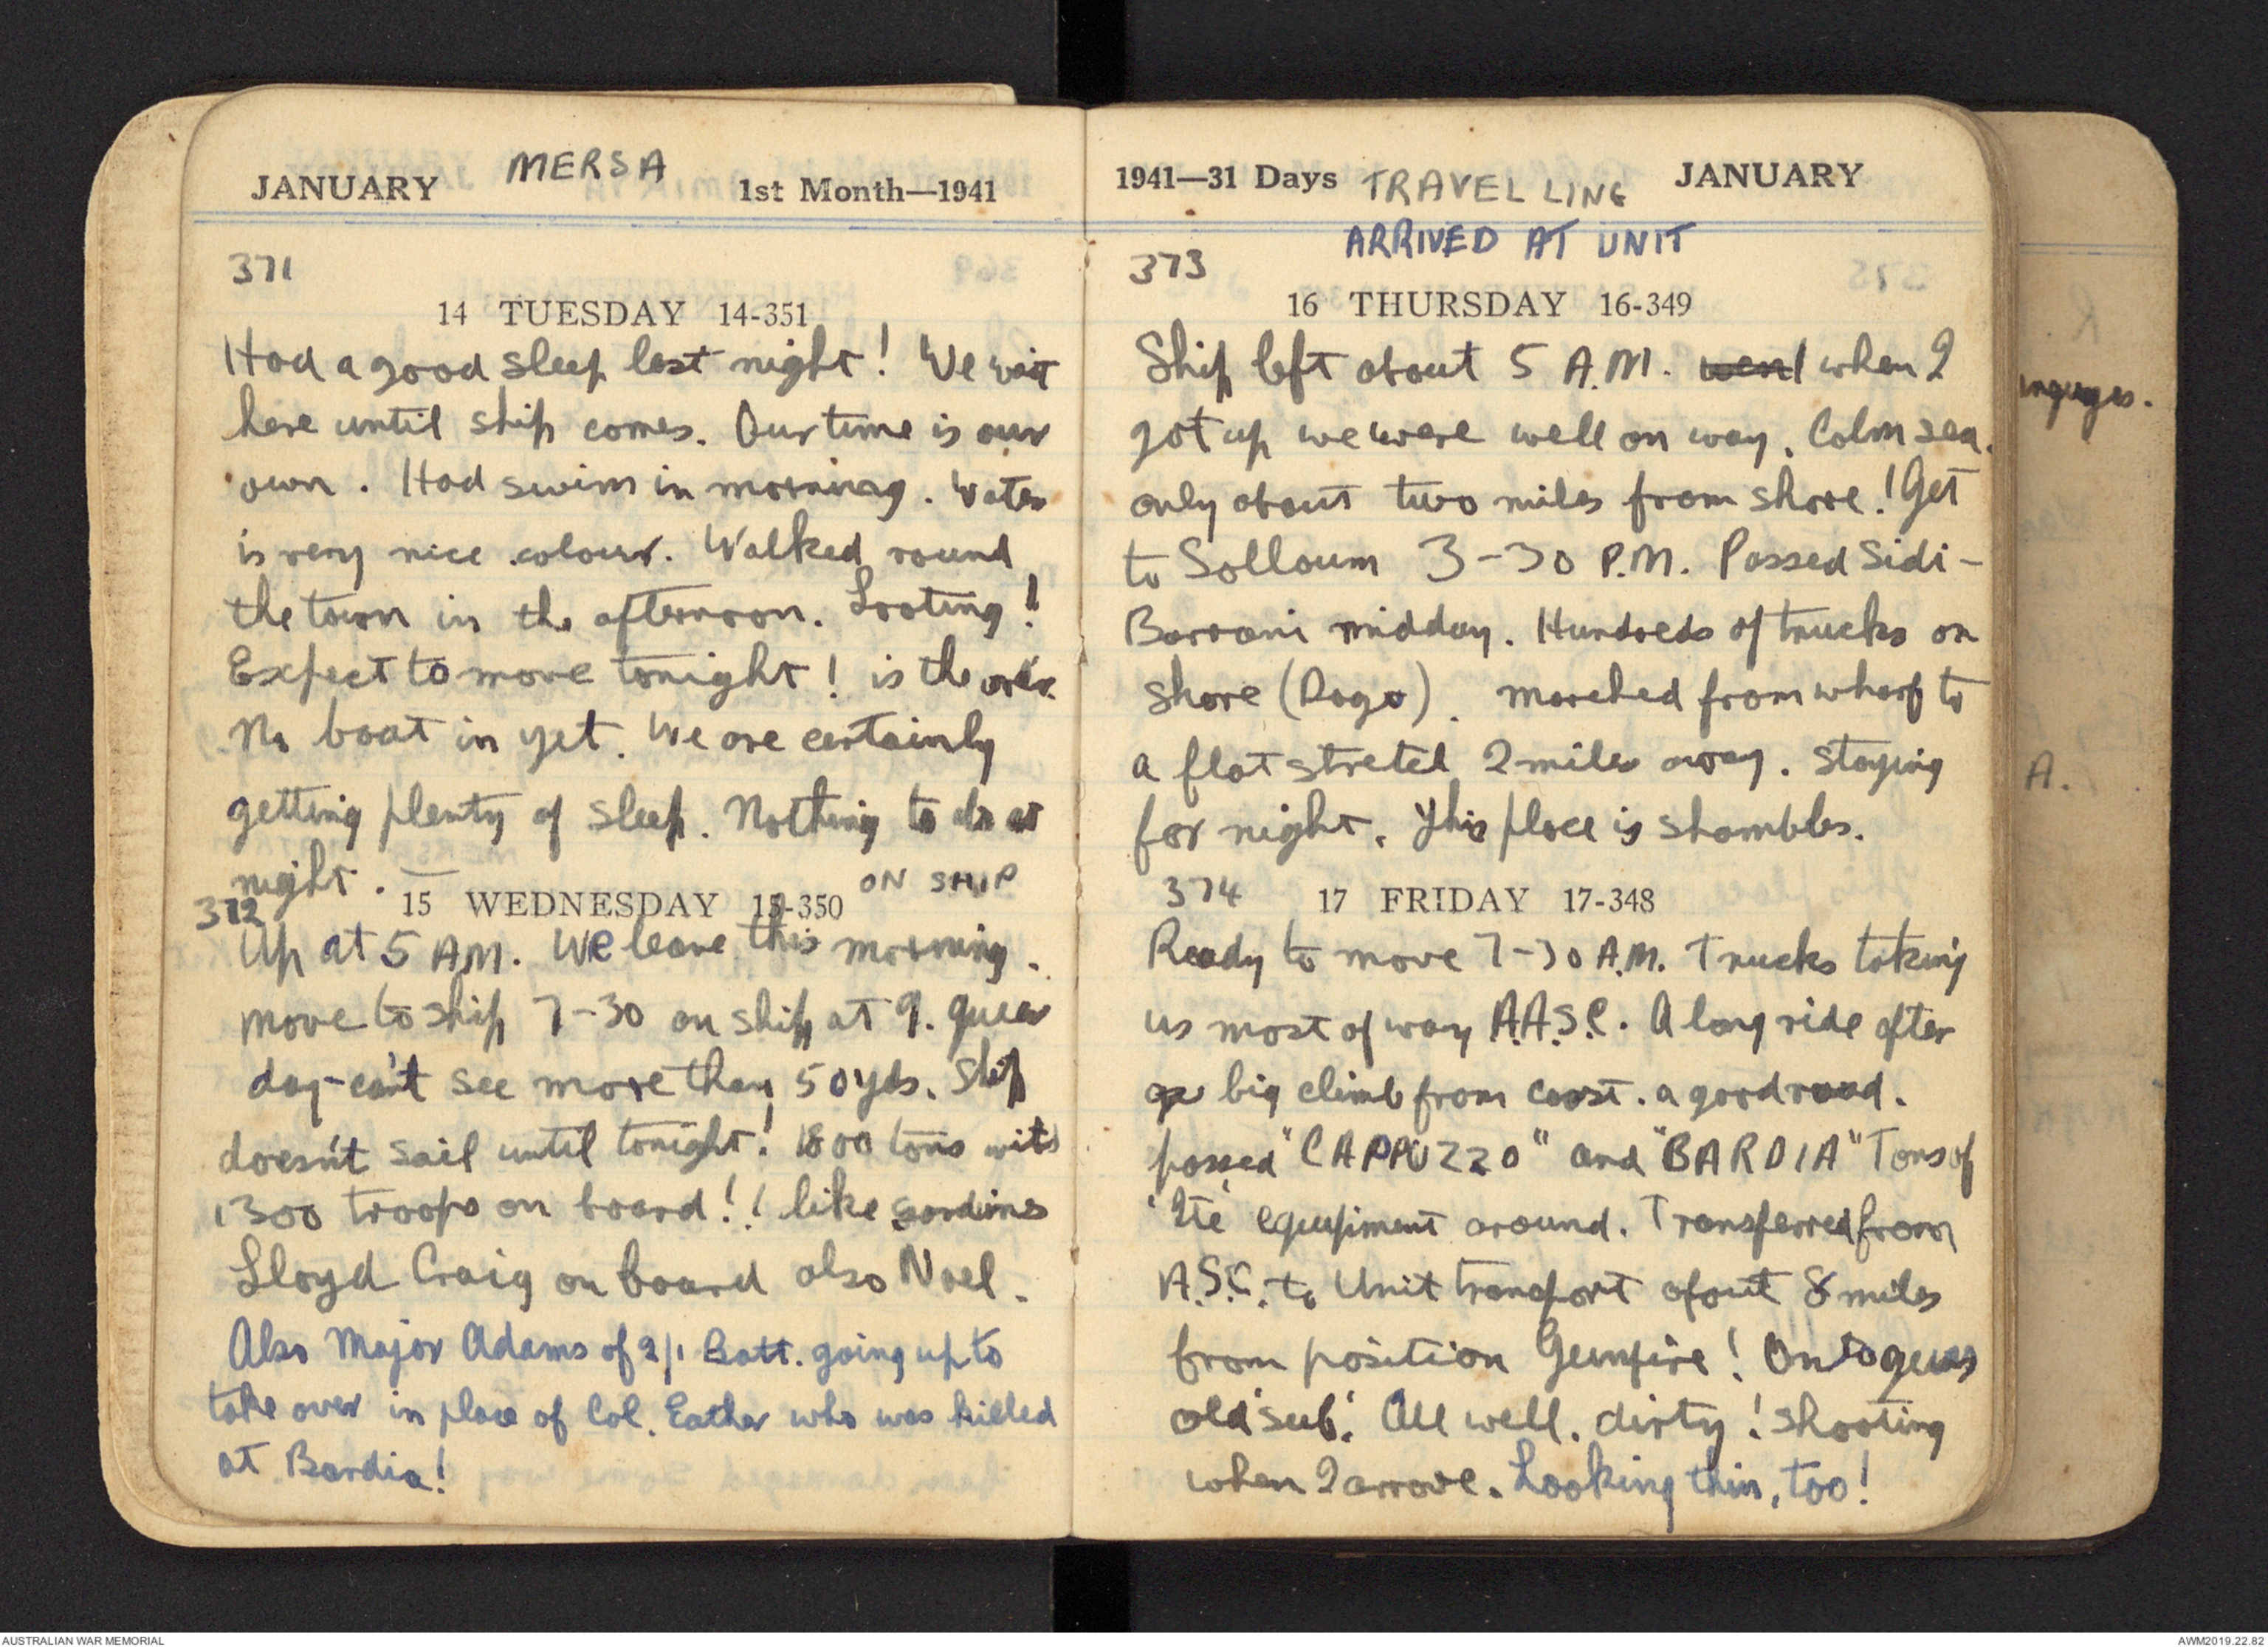 JANUARY MERSA 1st Month—1941
371
14 TUESDAY 14-351
Had a good sleep last night! We wait
here until ship comes. Our time is our
own. Had swim in morning. Water
is very nice colour. Walked round
the town in the afternoon. Looting!
Expect to move tonight! is the order.
No boat in yet. We are certainly
getting plenty of sleep. Nothing to do at
night.
372 15 WEDNESDAY 15-350 ON SHIP
Up at 5 A.M. We leave this morning.
move to ship 7-30 on ship at 9. queer
day-can't see more than 50 yds. Ship
doesn't sail until tonight! 1800 tons with
1300 troops on board!! like sardines
Lloyd Craig on board also Noel.
Also Major Adams of 2/1 Batt. going up to
take over in place of Col. Eather who was killed
at Bardia!
1941—31 Days TRAVELLING JANUARY
ARRIVED AT UNIT
373
16 THURSDAY 16-349
Ship left about 5 A.M. went when I
got up we were well on way. Calm sea.
only about two miles from shore! Get
to Solloum 3-30 P.M. Passed Sidi-
Barrani midday. Hundreds of trucks on
shore (Dago). marched from wharf to
a flat stretch 2 miles away. staying
for night. This place is shambles.
374 17 FRIDAY 17-348
Ready to move 7-30 A.M. Trucks taking
us most of way A.A.S.C. A long ride after
big climb from coast. a good road.
passed "CAPPUZZO" and "BARDIA" Tons of
'Ite' equipment around. Transferred from
A.S.C. to Unit transport about 8 miles
from position Gunfire! On to guns
old 'sub'. All well. dirty! shooting
when I arrove. Looking thin, too!
A.
AUSTRALIAN WAR MEMORIAL
AWM2019.22.82